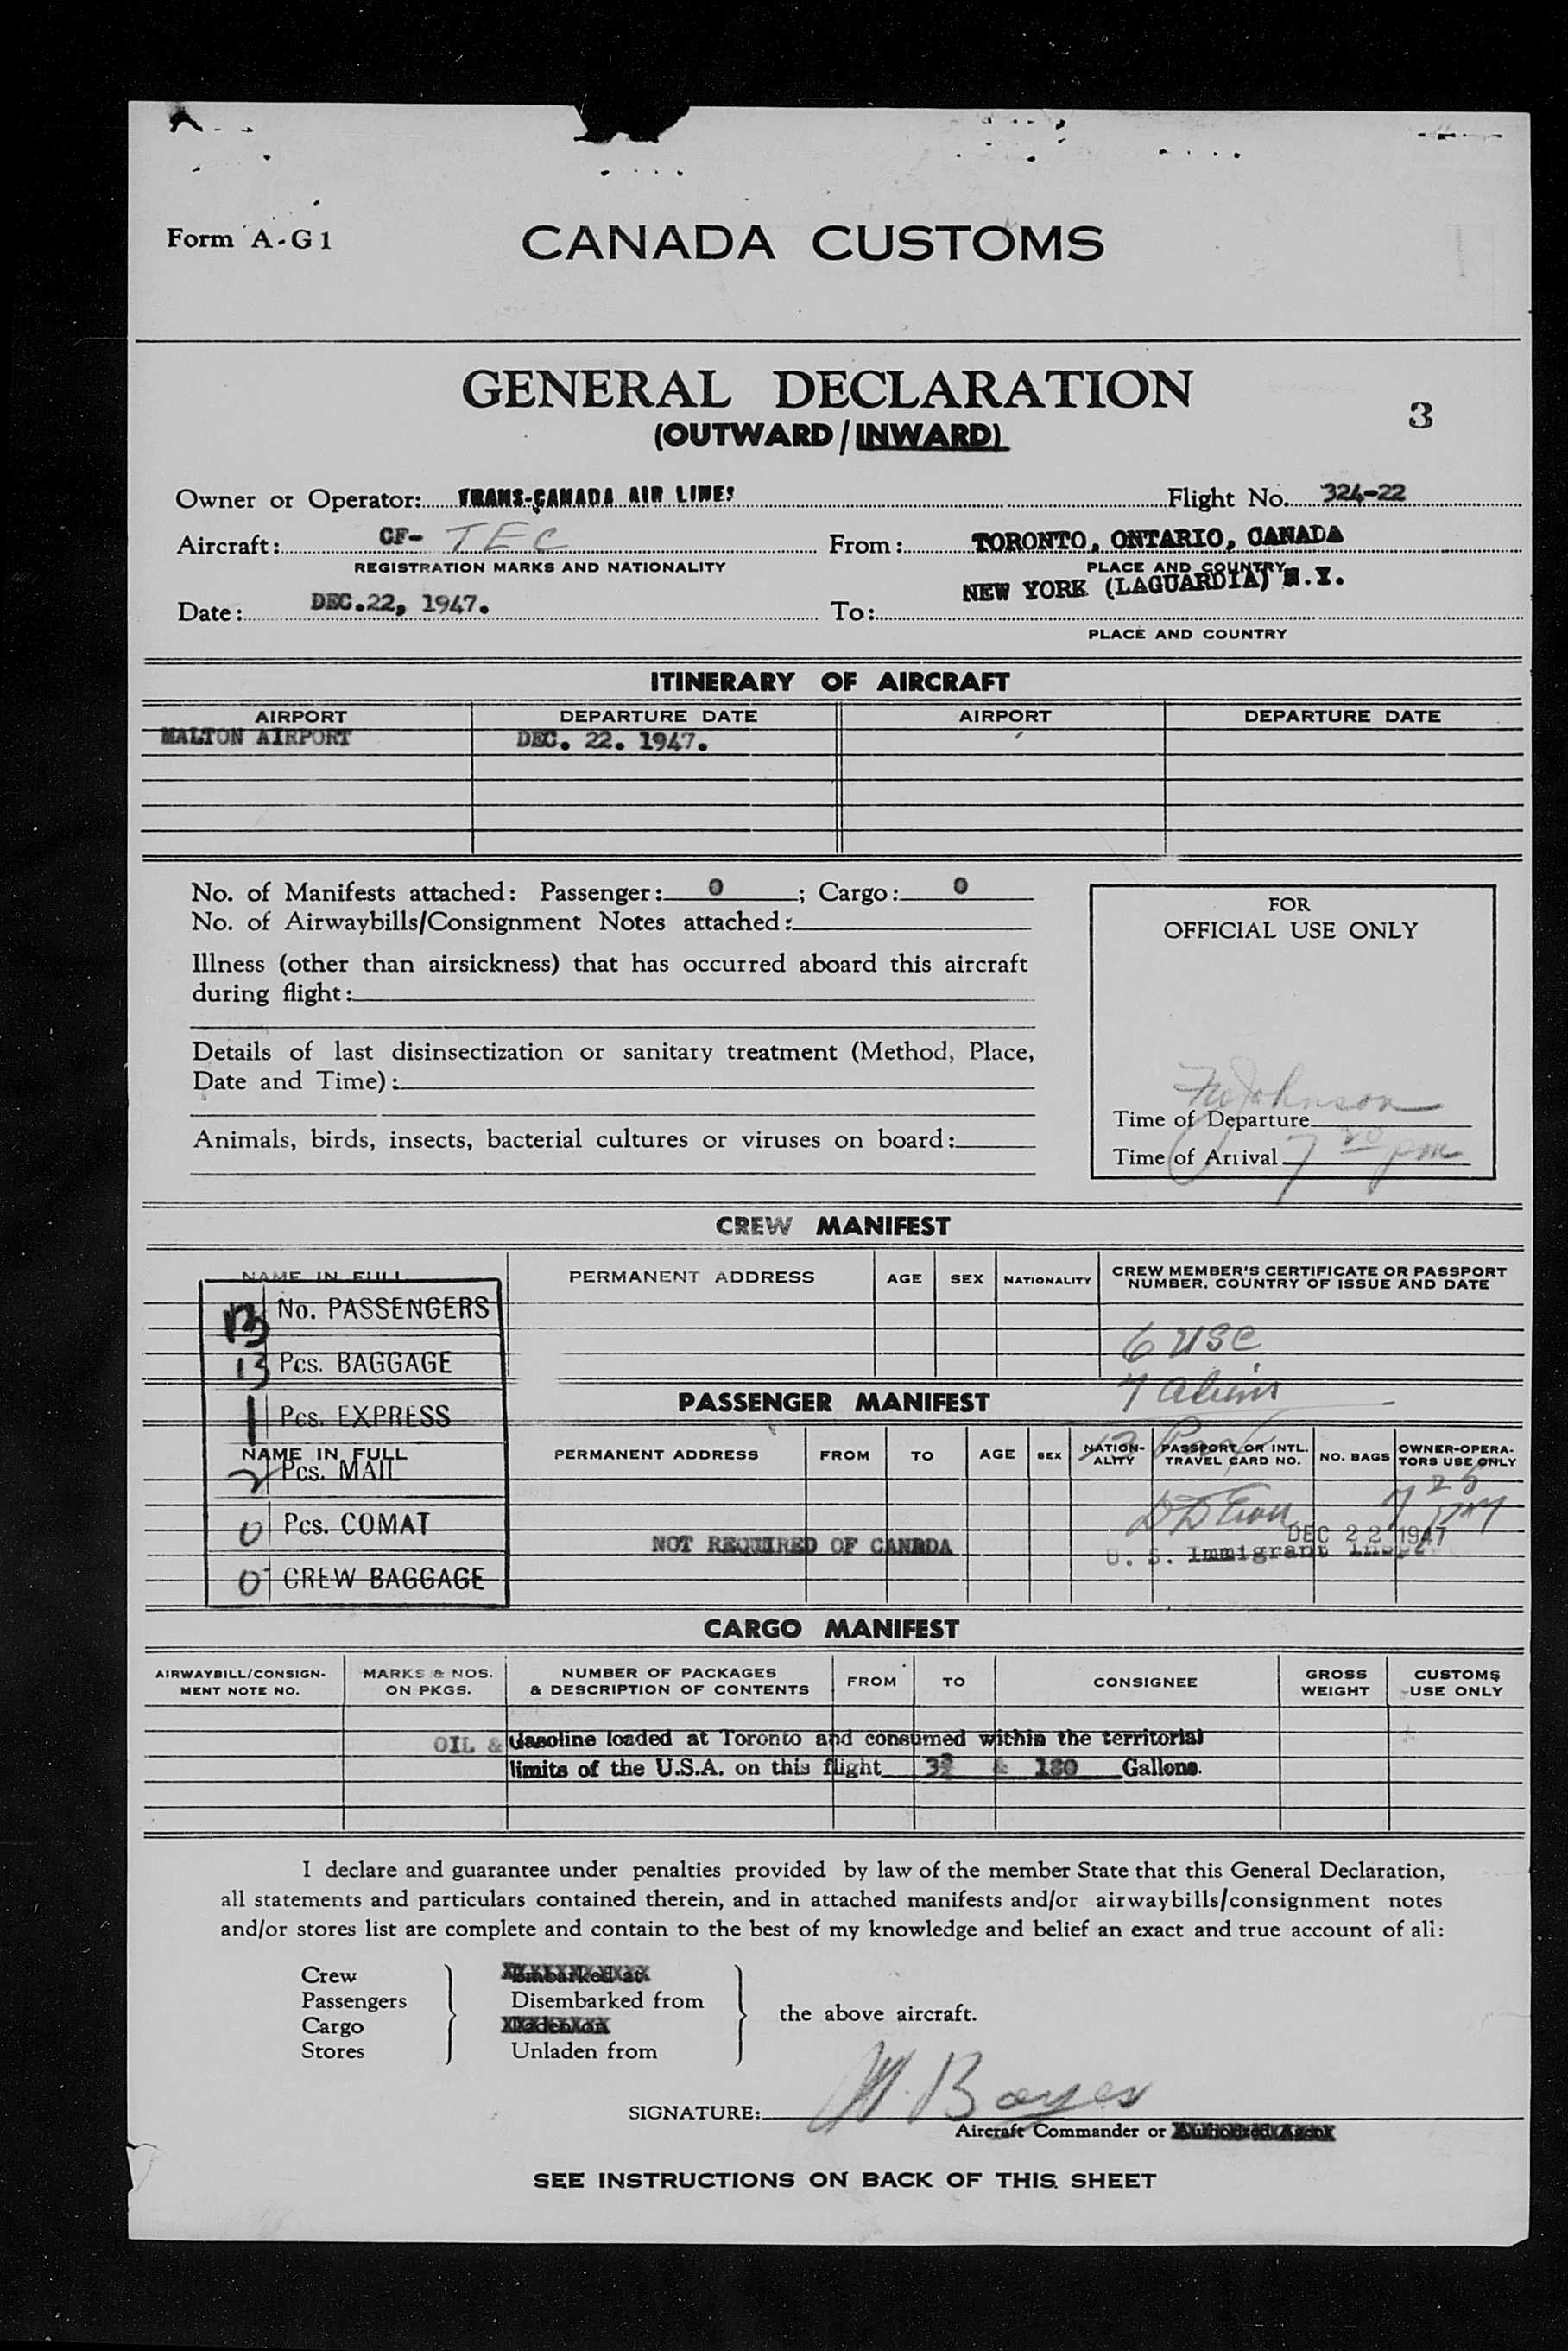 Form A-G1
CANADA CUSTOMS
GENERAL DECLARATION
(OUTWARD/INWARD)
3
Owner or Operator: TRANS-CANADA AIR LINES Flight No. 324-22
Aircraft: CF- TEC From: TORONTO, ONTARIO, CANADA
REGISTRATION MARKS AND NATIONALITY PLACE AND COUNTRY
Date: DEC.22, 1947. To: NEW YORK (LAGUARDIA) N.Y.
PLACE AND COUNTRY
ITINERARY OF AIRCRAFT
AIRPORT DEPARTURE DATE AIRPORT DEPARTURE DATE
MALTON AIRPORT DEC. 22. 1947.
No. of Manifests attached: Passenger: 0 ; Cargo: 0
No. of Airwaybills/Consignment Notes attached:
Illness (other than airsickness) that has occurred aboard this aircraft
during flight:
Details of last disinsectization or sanitary treatment (Method, Place,
Date and Time):
Animals, birds, insects, bacterial cultures or viruses on board:
FOR
OFFICIAL USE ONLY
Johnson
Time of Departure
Time of Arrival 7 20 pm
CREW MANIFEST
NAME IN FULL PERMANENT ADDRESS AGE SEX NATIONALITY CREW MEMBER'S CERTIFICATE OR PASSPORT
NUMBER, COUNTRY OF ISSUE AND DATE
13 No. PASSENGERS
13 Pcs. BAGGAGE
1 Pcs. EXPRESS
2 Pcs. MAIL
0 Pcs. COMAT
0 CREW BAGGAGE
6 USC
7 aliens
PASSENGER MANIFEST
NAME IN FULL PERMANENT ADDRESS FROM TO AGE SEX NATION-
ALITY PASSPORT OR INTL.
TRAVEL CARD NO. NO. BAGS OWNER-OPERA-
TORS USE ONLY
13
725
PM
DEC 22 1947
NOT REQUIRED OF CANADA
U. S. Immigrant
CARGO MANIFEST
AIRWAYBILL/CONSIGN-
MENT NOTE NO. MARKS & NOS.
ON PKGS. NUMBER OF PACKAGES
& DESCRIPTION OF CONTENTS FROM TO CONSIGNEE GROSS
WEIGHT CUSTOMS
USE ONLY
OIL & Gasoline loaded at Toronto and consumed within the territorial
limits of the U.S.A. on this flight & 180 Gallons.
I declare and guarantee under penalties provided by law of the member State that this General Declaration,
all statements and particulars contained therein, and in attached manifests and/or airwaybills/consignment notes
and/or stores list are complete and contain to the best of my knowledge and belief an exact and true account of all:
Crew Embarked at
Passengers Disembarked from
Cargo Laden on
Stores Unladen from
the above aircraft.
SIGNATURE: W. Boyes
Aircraft Commander or Authorized Agent
SEE INSTRUCTIONS ON BACK OF THIS SHEET